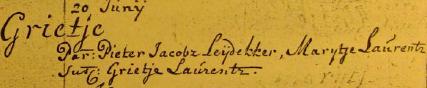 20 Junij
Grietje
Par: Pieter Jacobz Leijdekker, Marytje Laurentz
Sus: Grietje Laurentz.